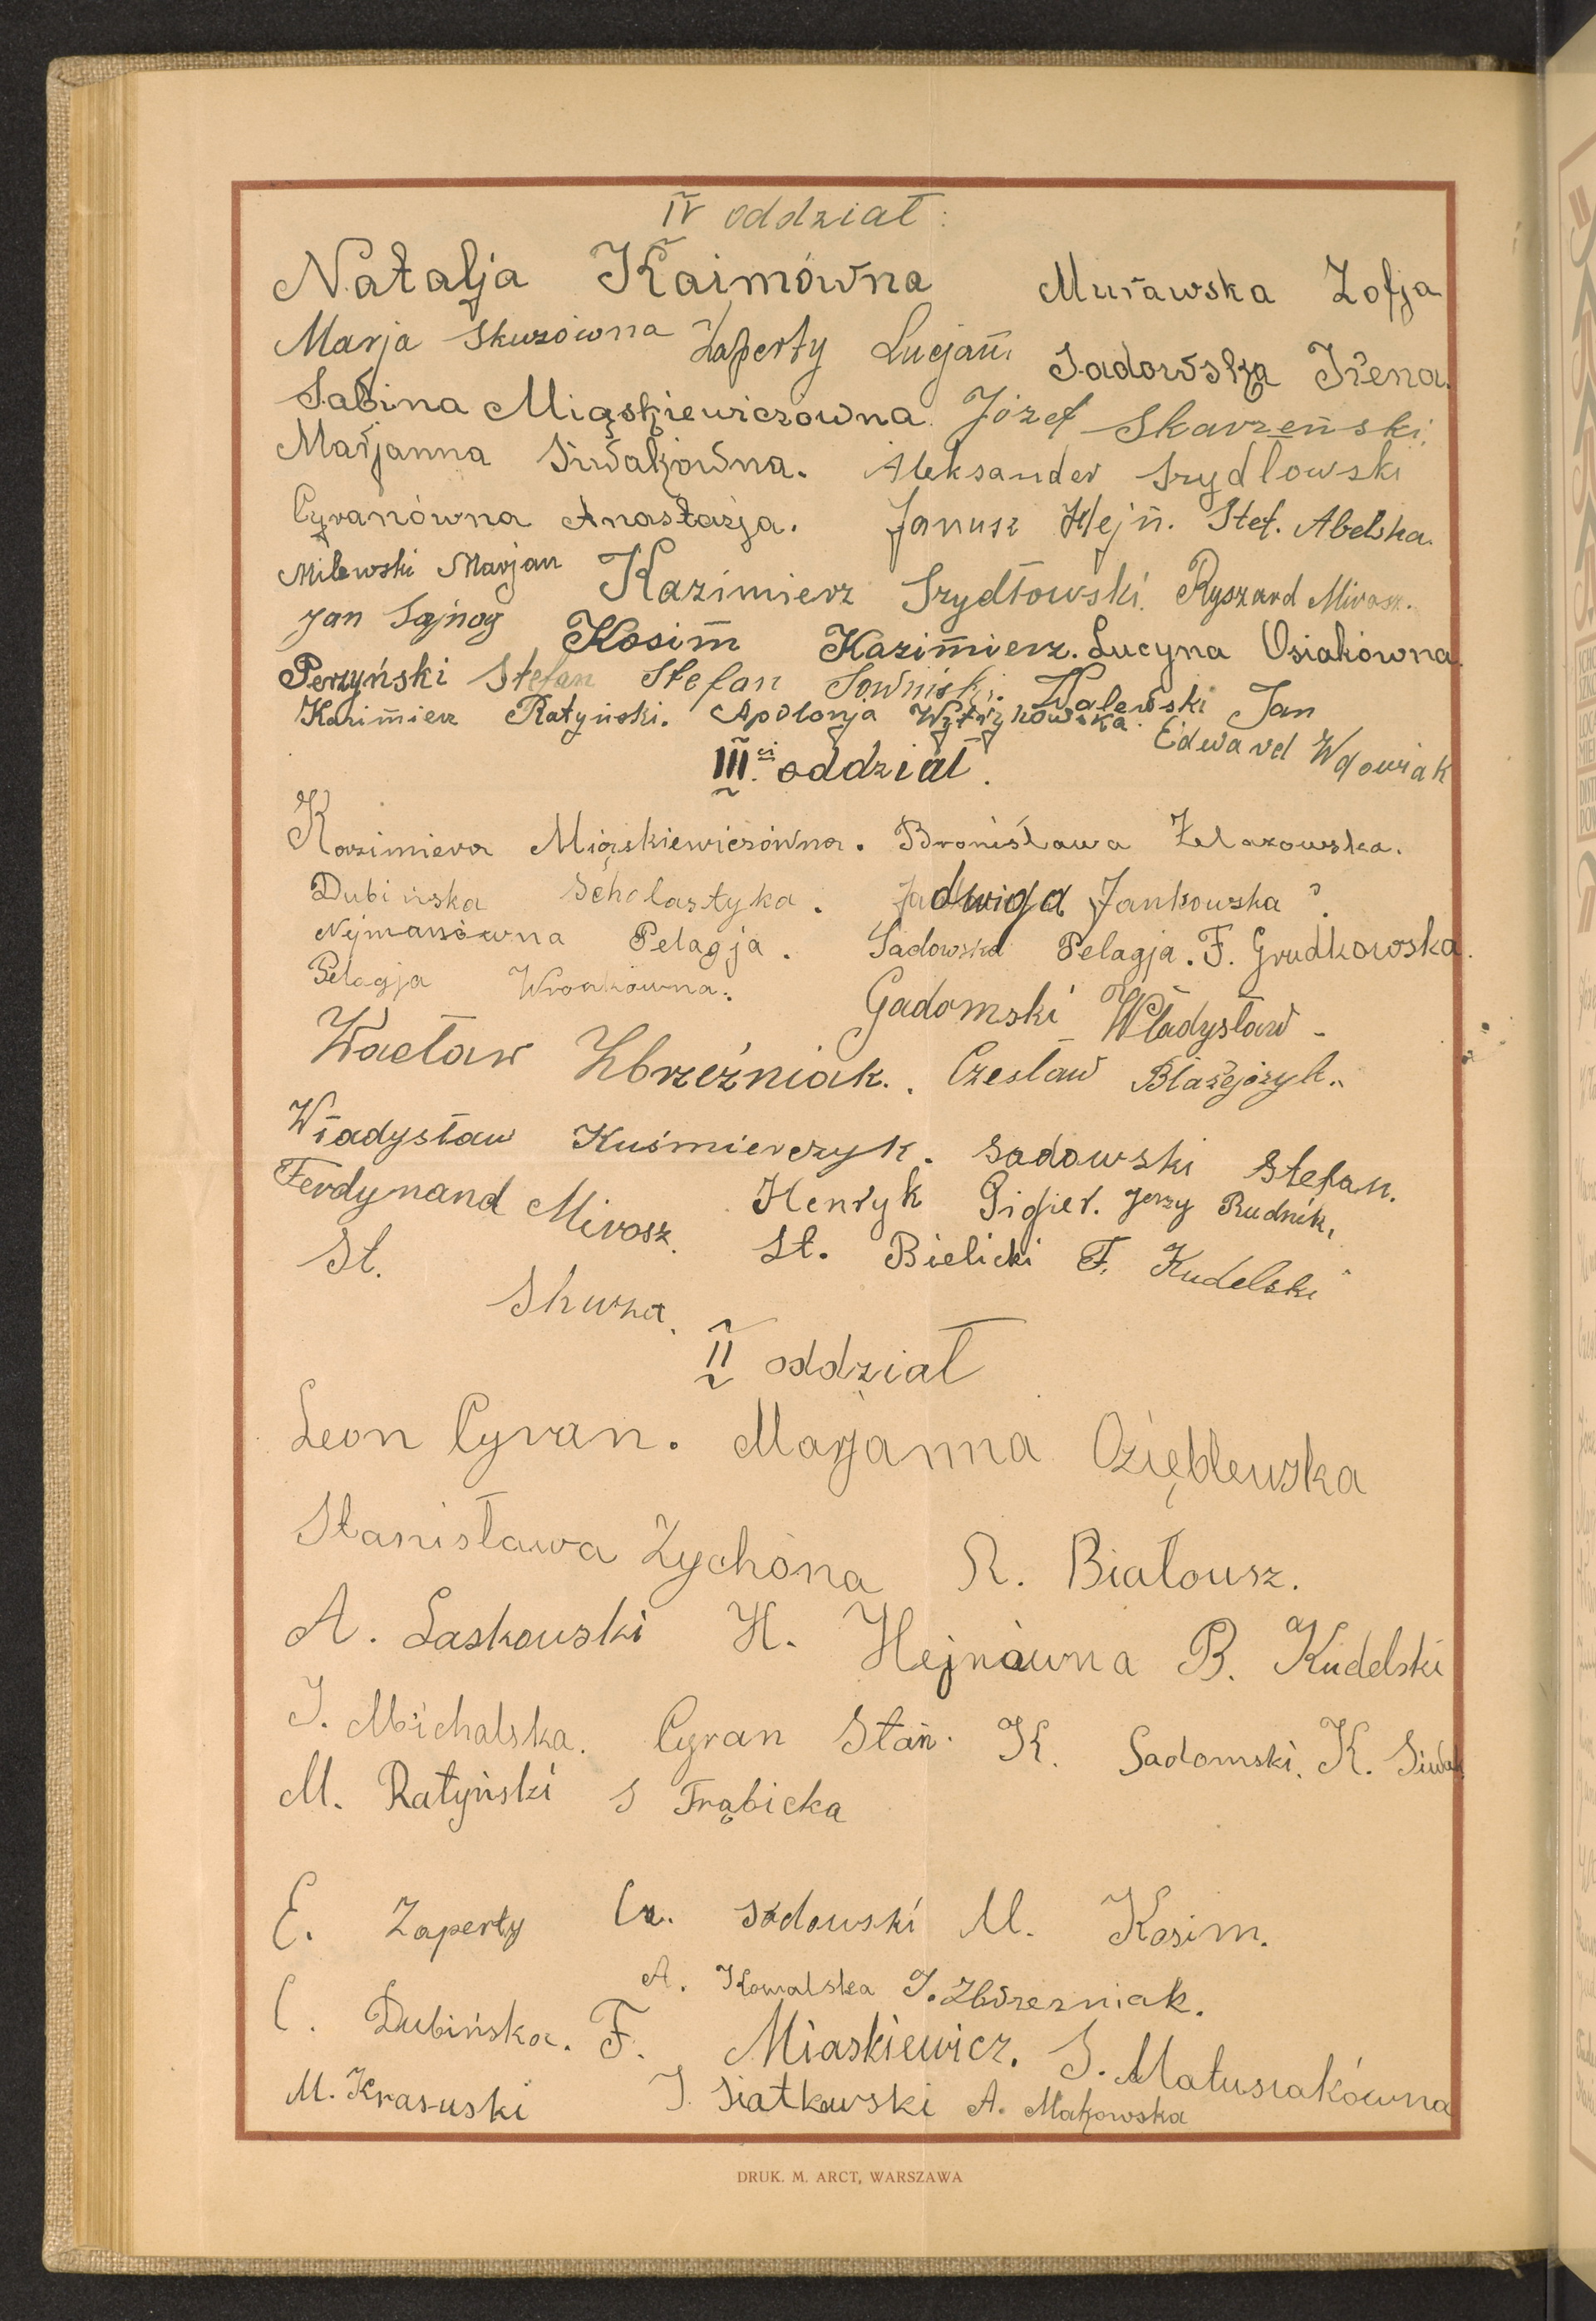 IV oddział:
Natalja Kaimówna Murawska Zofja
Marja Skurzówna Zaperty Lucjan Sadowska Irena.
Sabina Miąskiewiczowna. Józef Skarzeński.
Marjanna Siwakówna. Aleksander Szydlowski
Cyranówna Anastazja. Janusz Hejn. Stef. Abelska.
Milewski Marjan Kazimierz Szydłowski. Ryszard Mirosz.
Jan Sajnog Kosim Kazimierz. Lucyna Osiakowna.
Perzyński Stefan Stefan Sowniski. Walewski Jan
Kazimierz Ratyński. Apolonja Wytrykowska. Edward Wdowiak
III.ci oddział.
Kazimiera Miąskiewiczówna. Bronisława Żelazowska.
Dubińska Scholastyka. Jadwiga Jankowska.
Nejmanówna Pelagja. Sadowska Pelagja. F. Grudkowska.
Pelagja Wronkowna. Gadomski Władysław
Wacław Zbrzeźniak. Czesław Błażejczyk.
Władysław Kuśmierczyk. Sadowski Stefan.
Ferdynand Mirosz. Henryk Gigier. Jerzy Rudnik.
St. Skurza. St. Bielicki F. Kudelski
II oddział
Leon Cyran. Marjanna Oziębłewska
Stanisława Zychóna R. Białousz.
A. Laskowski H. Hejnówna B. Kudelski
J. Michalska. Cyran Stan. K. Sadomski. K. Siwak
M. Ratyński S Trąbicka
E. Zaperty Cz. Sadowski M. Kosim.
A. Kowalska J. Zbrzezniak.
C. Dubińska. F. Miaskiewicz. S. Matusiakówna
M. Krasuski J. Siatkowski A. Makowska
DRUK. M. ARCT, WARSZAWA